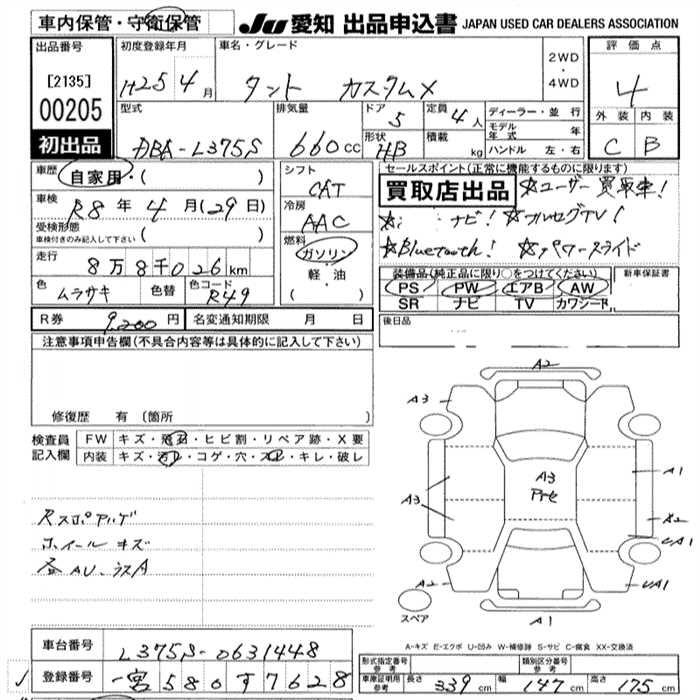 車内保管・守衛保管
JU 愛知 出品申込書 JAPAN USED CAR DEALERS ASSOCIATION
出品番号 初度登録年月 車名・グレード 2WD・4WD 評価点
[2135] H25 4月 タント カスタムX 4
00205 型式 排気量 ドア 5 定員 4人 ディーラー・並行 外装 内装
DBA-L375S 660cc 形状 HB 積載 kg モデル年式 年 C B
初出品 ハンドル 左・右
車歴 自家用・( ) シフト セールスポイント(正常に機能するものに限ります)
CAT 買取店出品 ☆ユーザー買取車!
車検 R8年4月(29日) 冷房 ナビ! ☆フルセグTV!
AAC
受検形態 車検付きのみ記入して下さい ( ) 燃料 ☆Bluetooth! ☆パワースライド
走行 8万8千026km ガソリン 装備品(純正品に限り○をつけてください) 新車保証書
軽・油 PS PW エアB AW
色 ムラサキ 色替 色コード R49 ・( ) SR ナビ TV カワシート
R券 9,200円 名変通知期限 月 日 後日品
注意事項申告欄(不具合内容等は具体的に記入して下さい)
修復歴 有 (箇所
検査員記入欄 FW キズ・飛石・ヒビ割・リペア跡・X要
内装 キズ・汚レ・コゲ・穴・スレ・キレ・破レ
A2
A3
A3
A3
A1
A2
A1
UA1
A1
スペア
ホイール キズ
A-キズ E-エクボ U-凹み W-補修跡 S-サビ C-腐食 XX-交換済
車台番号 L375S-0631448
形式指定番号 参考 類別区分番号 参考
登録番号 一宮 580 す 7628
車庫証明用 参考 長さ 339cm 幅 147cm 高さ 175cm